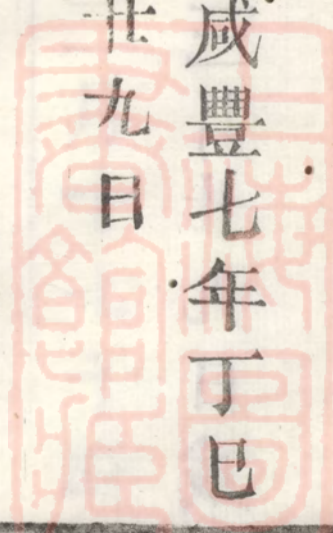 咸豐七年丁巳
廿九日